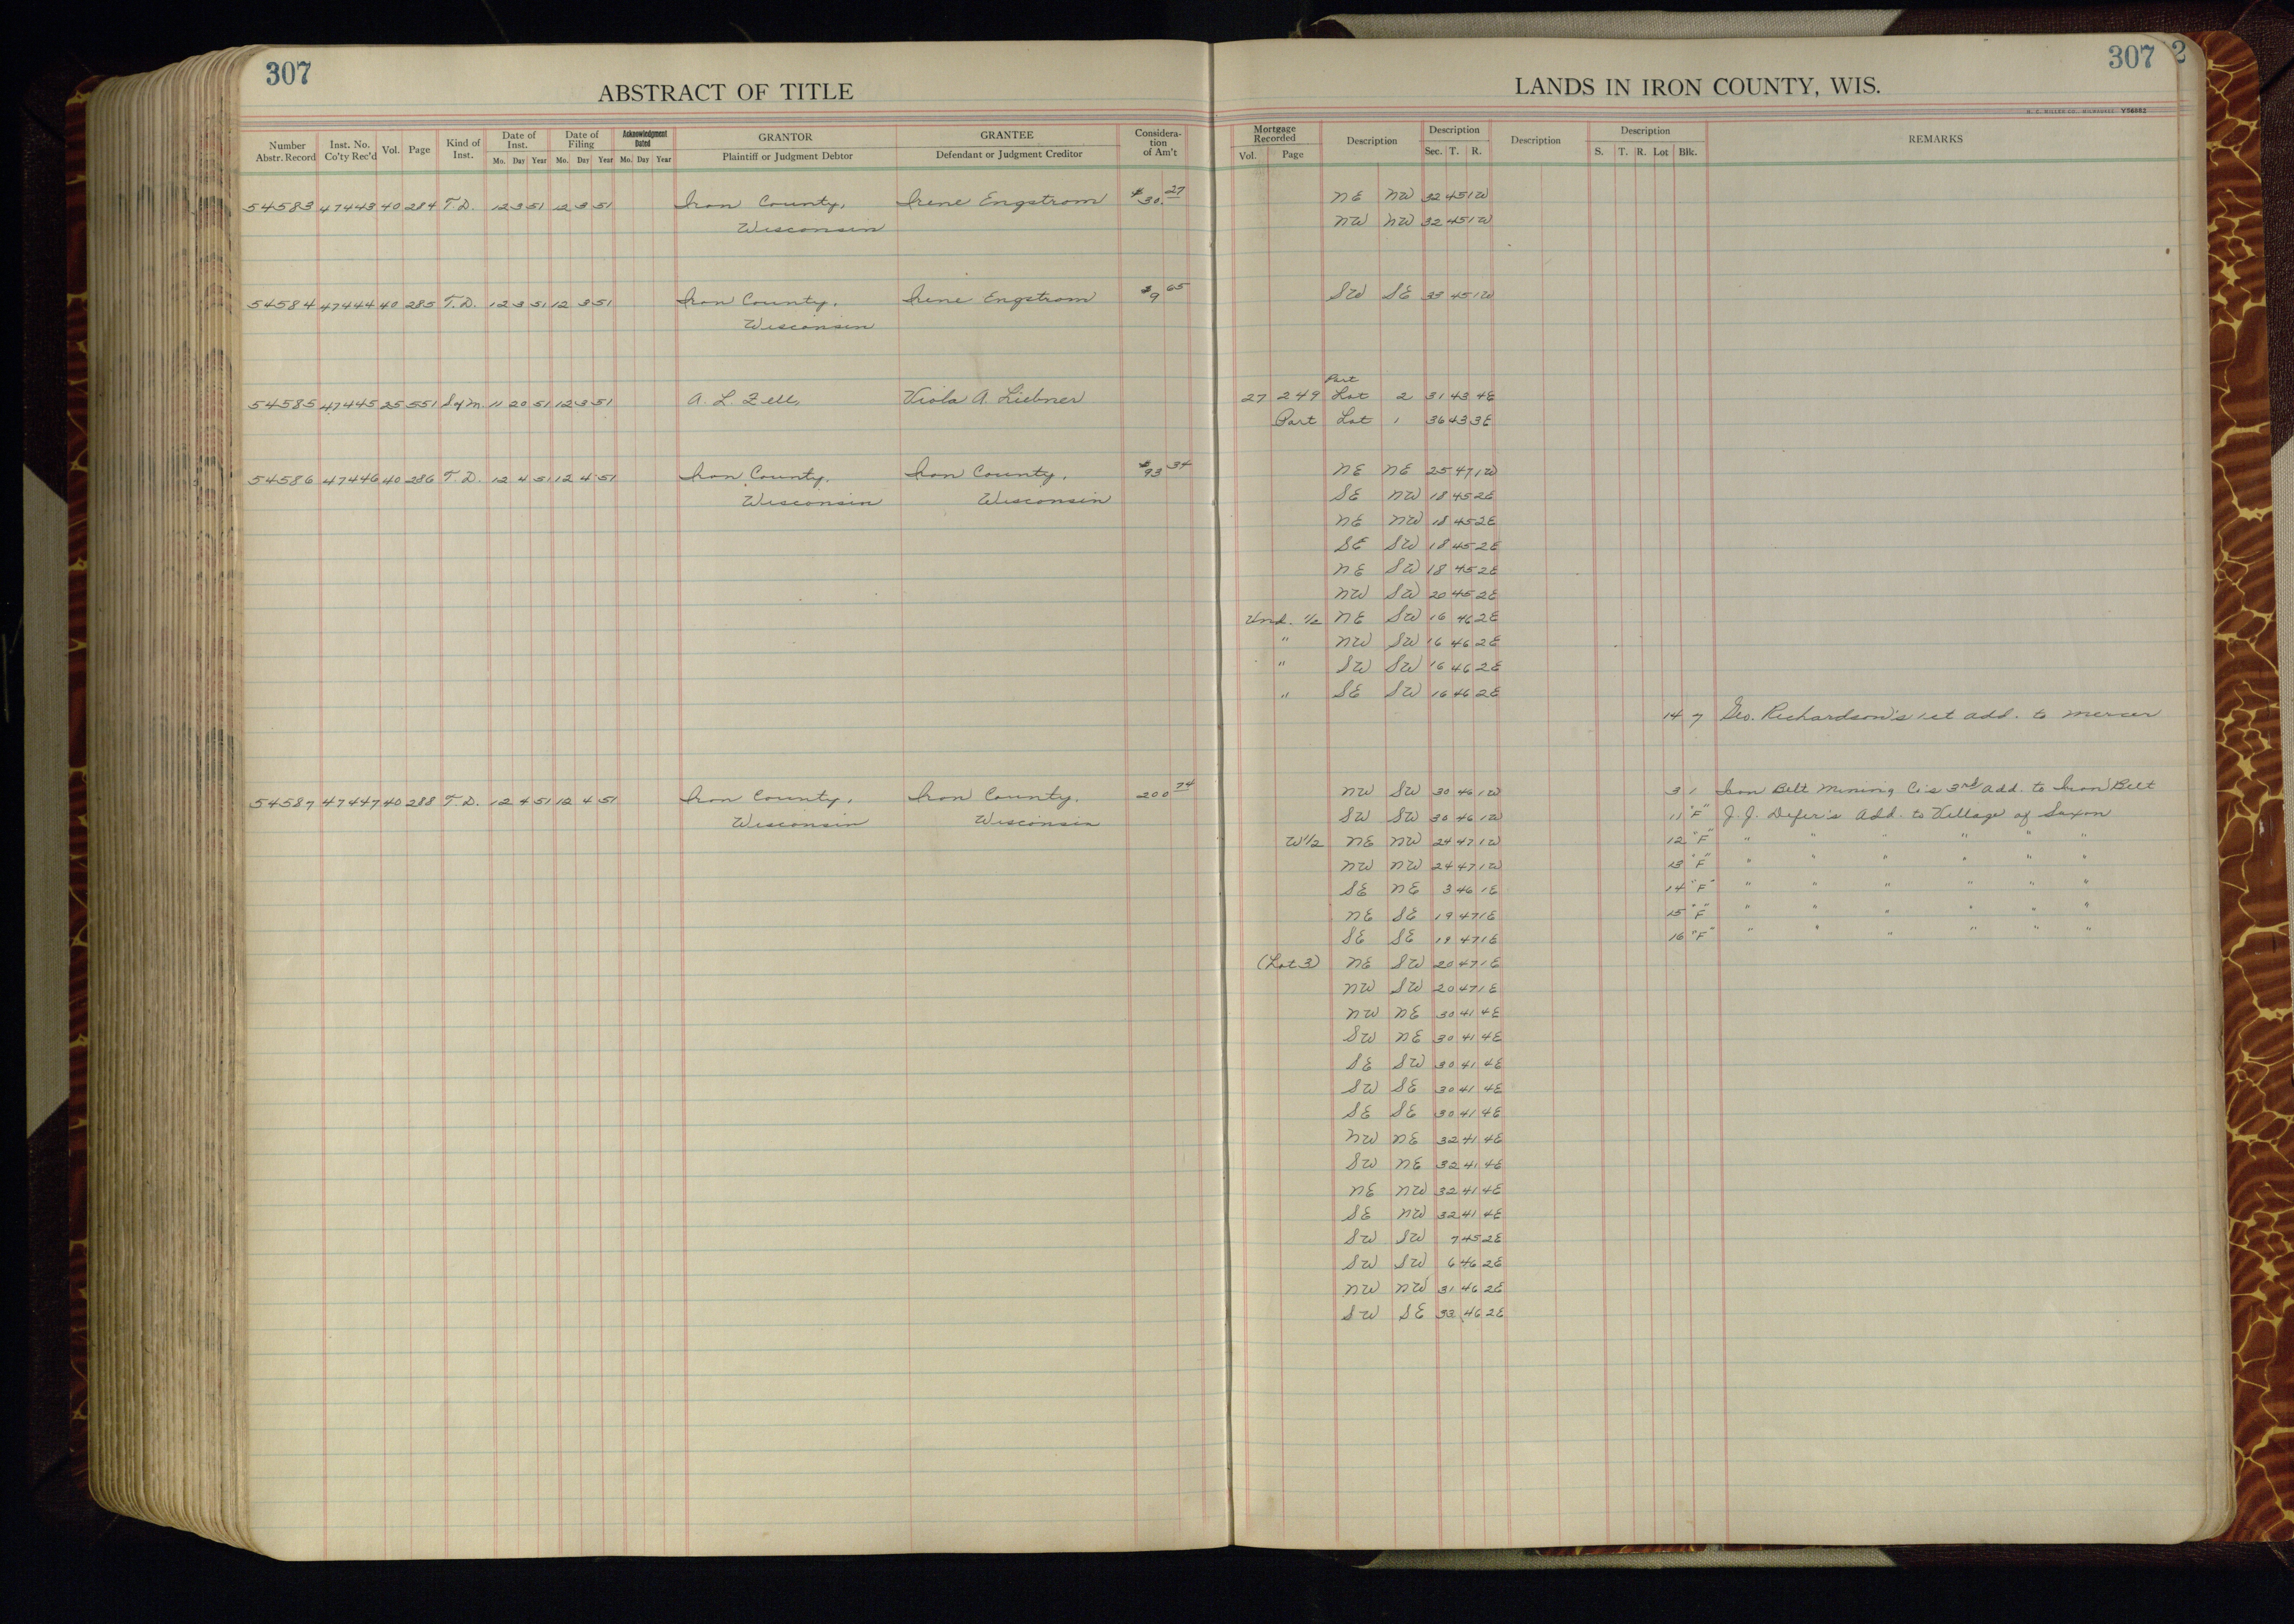 307
ABSTRACT OF TITLE
Number Abstr. Record | Inst. No. Co'ty Rec'd | Vol. | Page | Kind of Inst. | Date of Inst. Mo. Day Year | Date of Filing Mo. Day Year | Acknowledgment Dated Mo. Day Year | GRANTOR Plaintiff or Judgment Debtor | GRANTEE Defendant or Judgment Creditor | Consideration of Am't
54583 47443 40 284 T.D. 12 3 51 12 3 51 Iron County, Irene Engstrom $30.27
Wisconsin
54584 47444 40 285 T.D. 12 3 51 12 3 51 Iron County, Irene Engstrom $9 65
Wisconsin
54585 47445 25 551 S of M. 11 20 51 12 3 51 A. L. Zell, Viola A. Liebner
54586 47446 40 286 T.D. 12 4 51 12 4 51 Iron County, Iron County, $93 34
Wisconsin Wisconsin
54587 47447 40 288 T.D. 12 4 51 12 4 51 Iron County, Iron County, 200 74
Wisconsin Wisconsin
307 2
LANDS IN IRON COUNTY, WIS.
H. C. MILLER CO. MILWAUKEE Y56862
Mortgage Recorded Vol. Page | Description | Description Sec. T. R. | Description | Description S. T. R. Lot Blk. | REMARKS
NE NW 32 45 1W
NW NW 32 45 1W
SW SE 33 45 1W
Part
27 249 Lot 2 31 43 4E
Part Lot 1 36 43 3E
NE NE 25 47 1W
SE NW 18 45 2E
NE NW 18 45 2E
SE SW 18 45 2E
NE SW 18 45 2E
NW SW 20 45 2E
Und. 1/2 NE SW 16 46 2E
" NW SW 16 46 2E
" SW SW 16 46 2E
" SE SW 16 46 2E
14 7 Geo. Richardson's 1st add. to Mercer
NW SW 30 46 1W 3 1 Iron Belt Mining Co's 3rd add. to Iron Belt
SW SW 30 46 1W 11 "F" J. J. Defer's Add. to Village of Saxon
W 1/2 NE NW 24 47 1W 12 "F" " " " " " "
NW NW 24 47 1W 13 "F" " " " " " "
SE NE 3 46 1E 14 "F" " " " " " "
NE SE 19 47 1E 15 "F" " " " " " "
SE SE 19 47 1E 16 "F" " " " " " "
(Lot 3) NE SW 20 47 1E
NW SW 20 47 1E
NW NE 30 41 4E
SW NE 30 41 4E
SE SW 30 41 4E
SW SE 30 41 4E
SE SE 30 41 4E
NW NE 32 41 4E
SW NE 32 41 4E
NE NW 32 41 4E
SE NW 32 41 4E
SW SW 7 45 2E
SW SW 6 46 2E
NW NW 31 46 2E
SW SE 33 46 2E